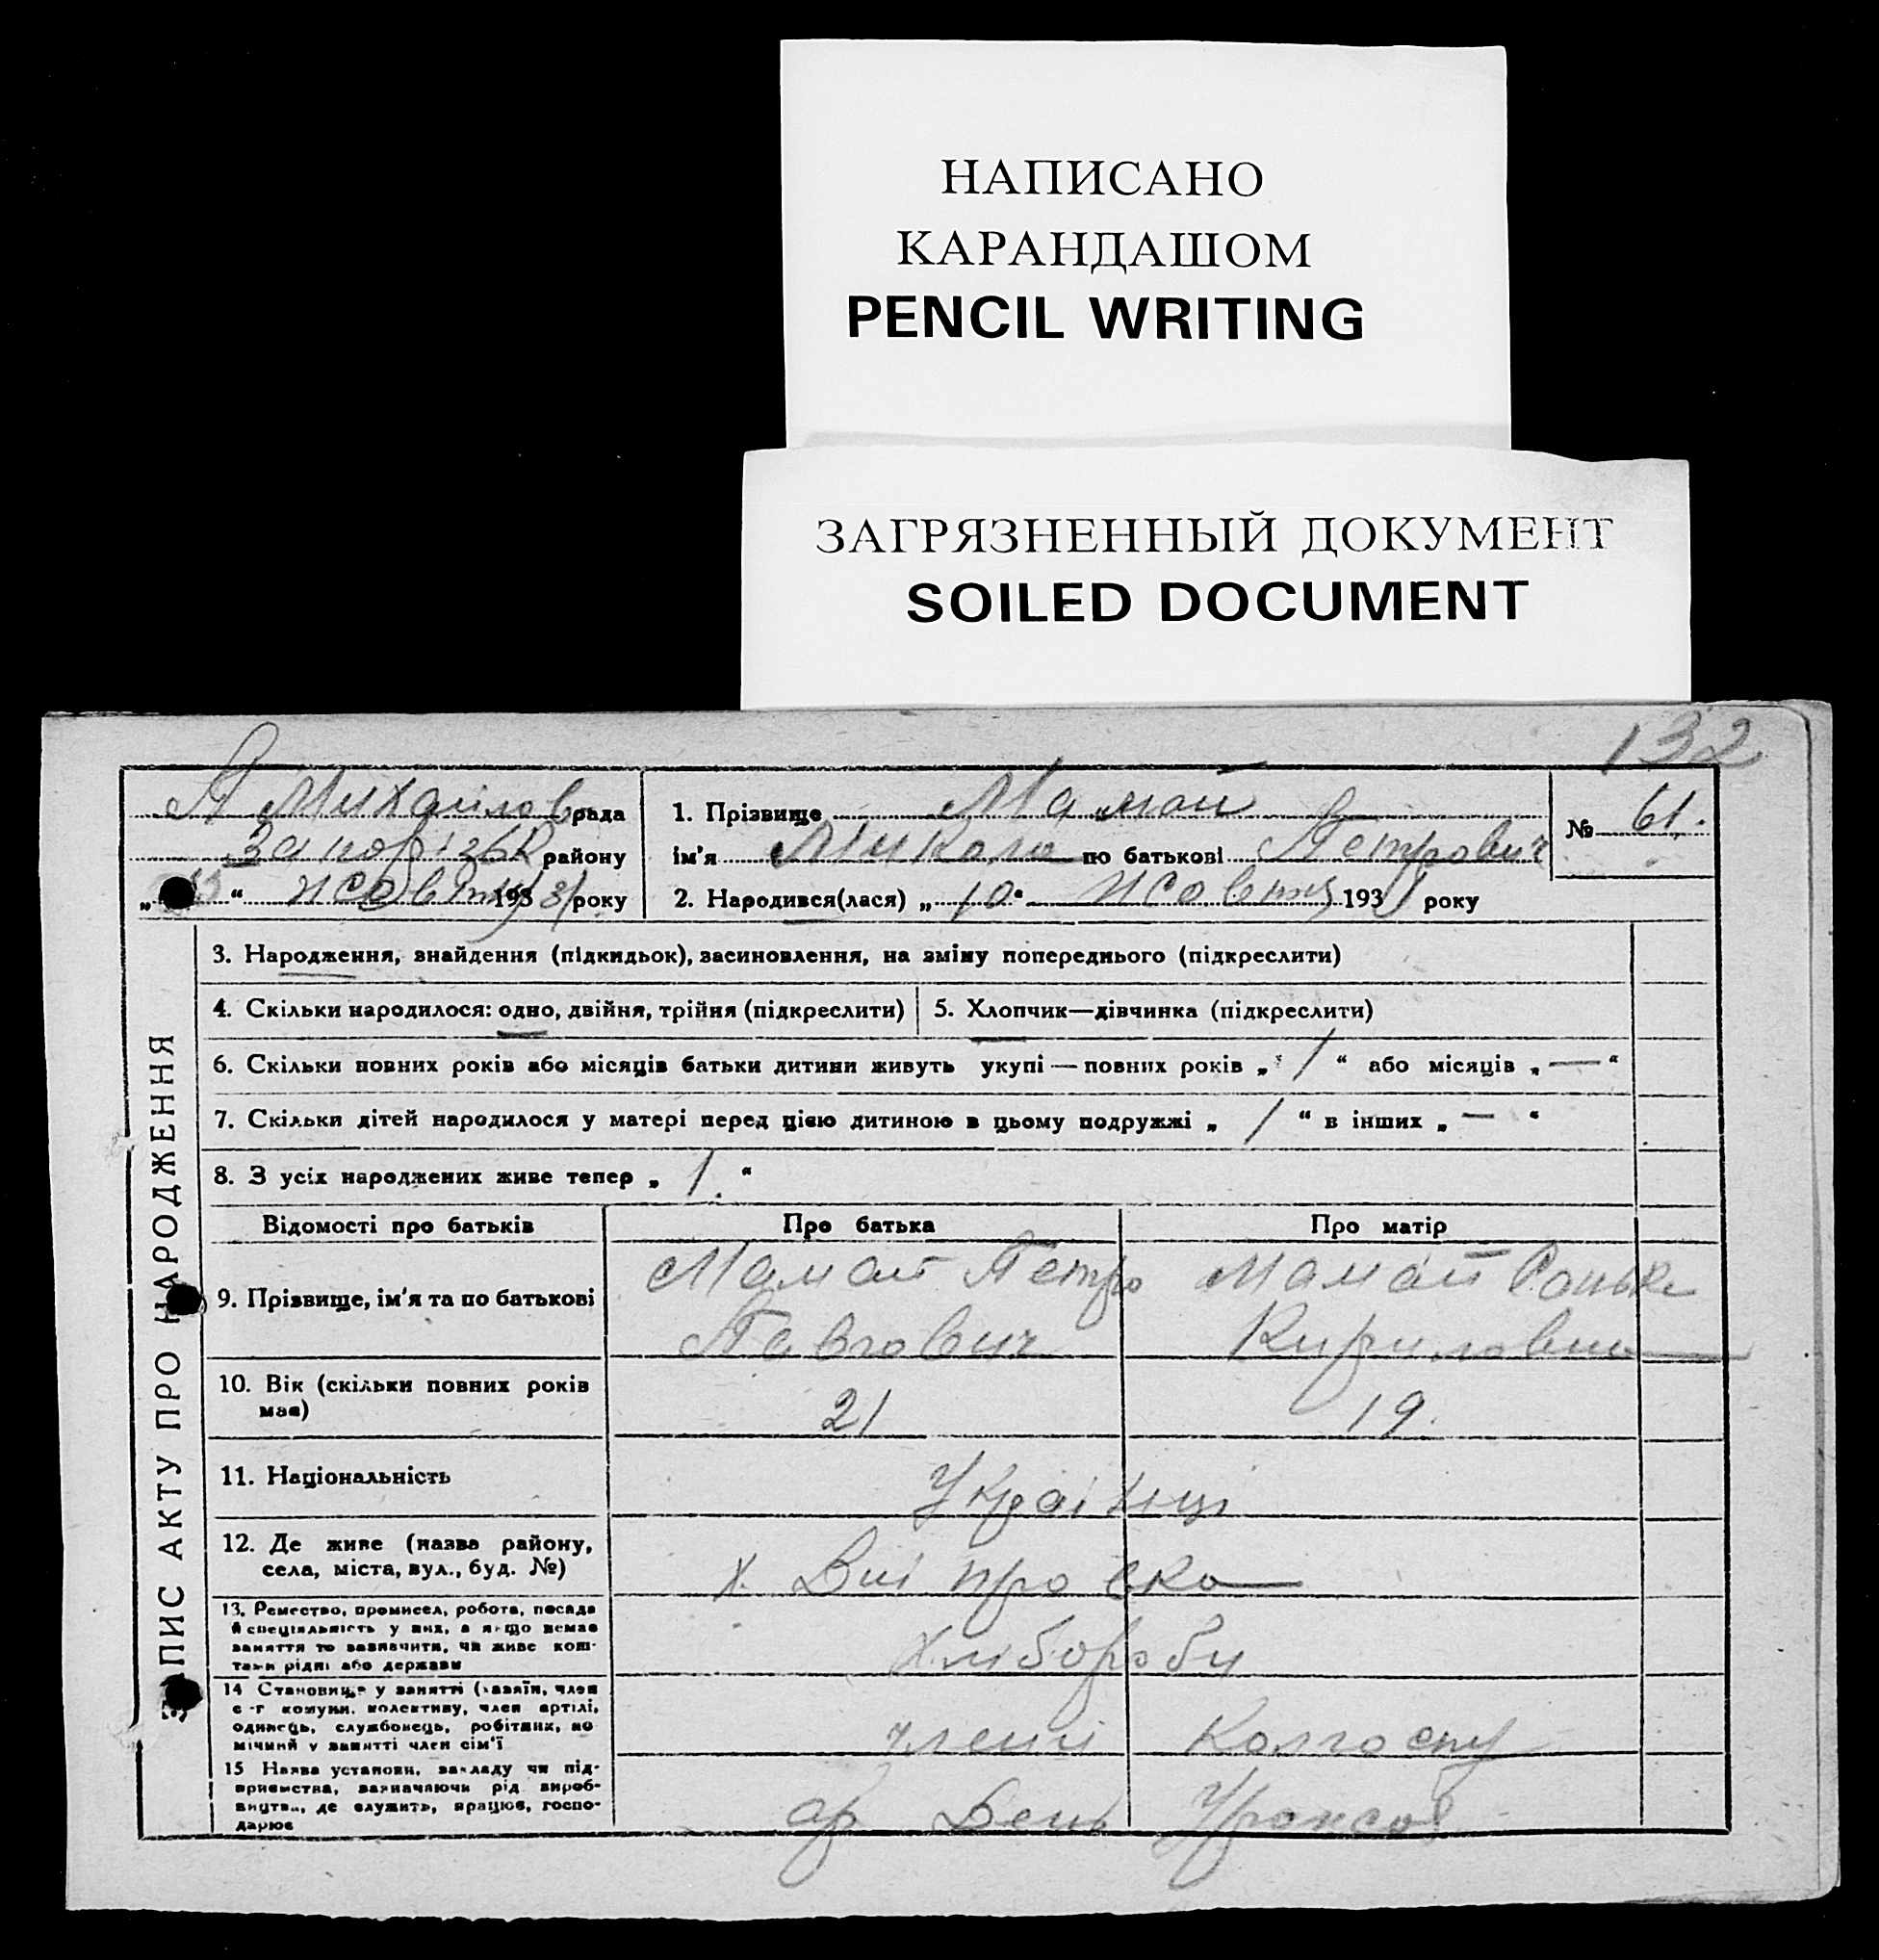 НАПИСАНО
КАРАНДАШОМ
PENCIL WRITING
ЗАГРЯЗНЕННЫЙ ДОКУМЕНТ
SOILED DOCUMENT
132
ЗАПИС АКТУ ПРО НАРОДЖЕННЯ
П Михайлов рада
Запорізьк району
" " жовтня 1931 року
1. Прізвище Мамай
ім'я Микола по батькові Петрович
№ 61.
2. Народився(лася) „10" жовтня 1931 року
3. Народження, знайдення (підкидьок), засиновлення, на зміну попереднього (підкреслити)
4. Скільки народилося: одно, двійня, трійня (підкреслити)
5. Хлопчик—дівчинка (підкреслити)
6. Скільки повних років або місяців батьки дитини живуть укупі — повних років „ 1 “ або місяців „ — “
7. Скільки дітей народилося у матері перед цією дитиною в цьому подружжі „ 1 “ в інших „ — “
8. З усіх народжених живе тепер „ 1. “
Відомості про батьків Про батька Про матір
9. Прізвище, ім'я та по батькові
Мамай Петро
Павлович
Мамай
Кириловна
10. Вік (скільки повних років
має)
21
19.
11. Національність
Українці
12. Де живе (назва району,
села, міста, вул., буд. №)
х. Дніпровка
13. Ремество, промисел, робота, посада
й спеціяльність у них, а якщо немає
заняття то зазначити, чи живе кош-
тами рідні або держави
Хлібороби
14 Становище у занятті (хазяїн, член
с-г комуни, колективу, член артілі,
одинець, службовець, робітник, по
мічний у занятті член сім'ї
члени Колгоспу
15 Назва установи, закладу чи під-
приємства, зазначаючи рід вироб-
ництва, де служить, працює, госпо-
дарює
ар День Урожая